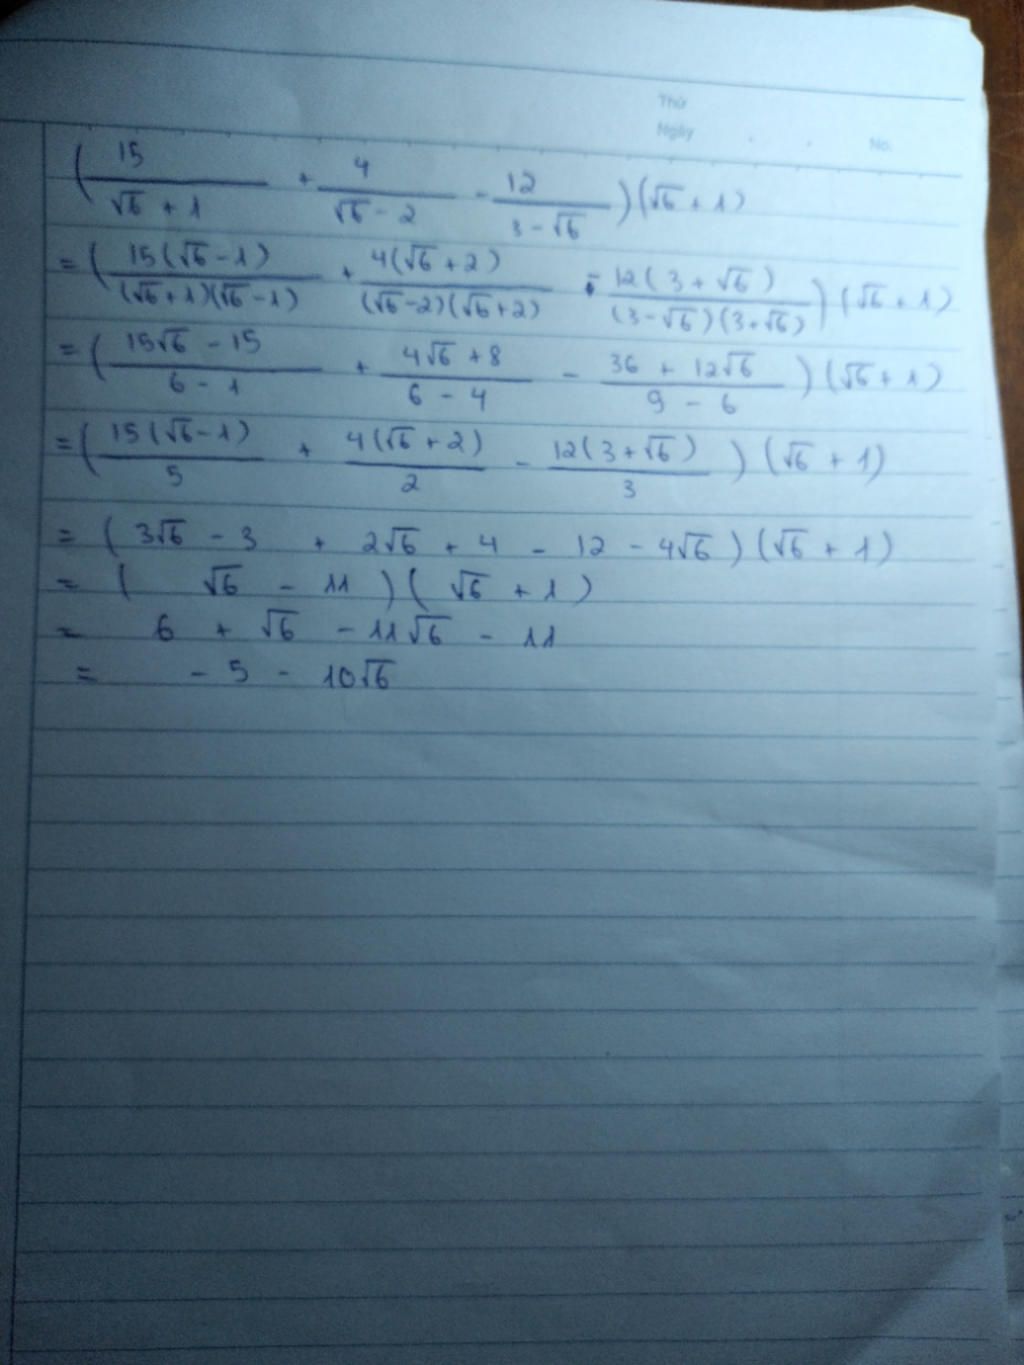 Thứ
Ngày No.
( 15/(√6 + 1) + 4/(√6 - 2) - 12/(3 - √6) ) (√6 + 1)
= ( 15(√6 - 1)/((√6 + 1)(√6 - 1)) + 4(√6 + 2)/((√6 - 2)(√6 + 2)) - 12(3 + √6)/((3 - √6)(3 + √6)) ) (√6 + 1)
= ( (15√6 - 15)/(6 - 1) + (4√6 + 8)/(6 - 4) - (36 + 12√6)/(9 - 6) ) (√6 + 1)
= ( 15(√6 - 1)/5 + 4(√6 + 2)/2 - 12(3 + √6)/3 ) (√6 + 1)
= ( 3√6 - 3 + 2√6 + 4 - 12 - 4√6 ) (√6 + 1)
= ( √6 - 11 ) ( √6 + 1 )
= 6 + √6 - 11√6 - 11
= - 5 - 10√6